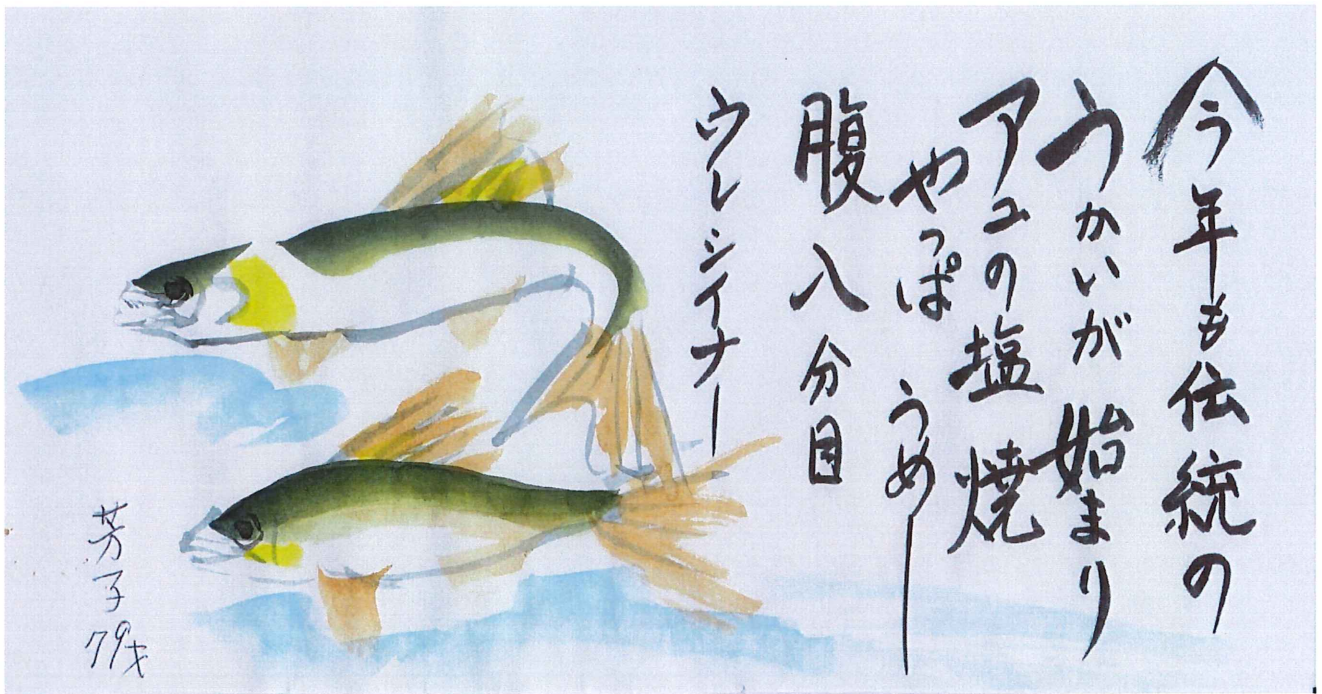 今年も伝統の
うかいが始まり
アユの塩焼
やっぱうめー
腹八分目
ウレシイナー
芳子
79才